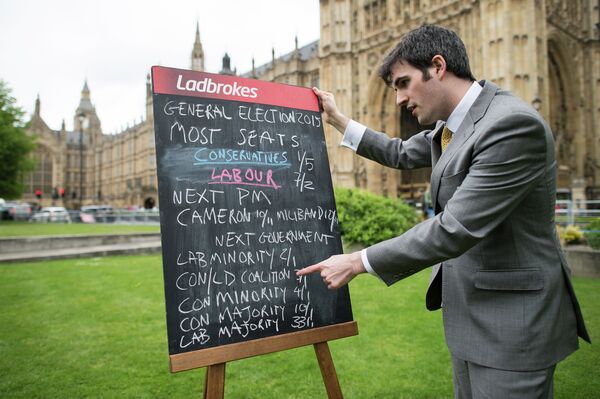 Ladbrokes
GENERAL ELECTION 2015
MOST SEATS
CONSERVATIVES 1/5
LABOUR 7/2
NEXT PM
CAMERON 10/11 MILIBAND
NEXT GOVERNMENT
LAB MINORITY 2/1
CON/LD COALITION
CON MINORITY 4/1
CON MAJORITY 10/1
LAB MAJORITY 33/1